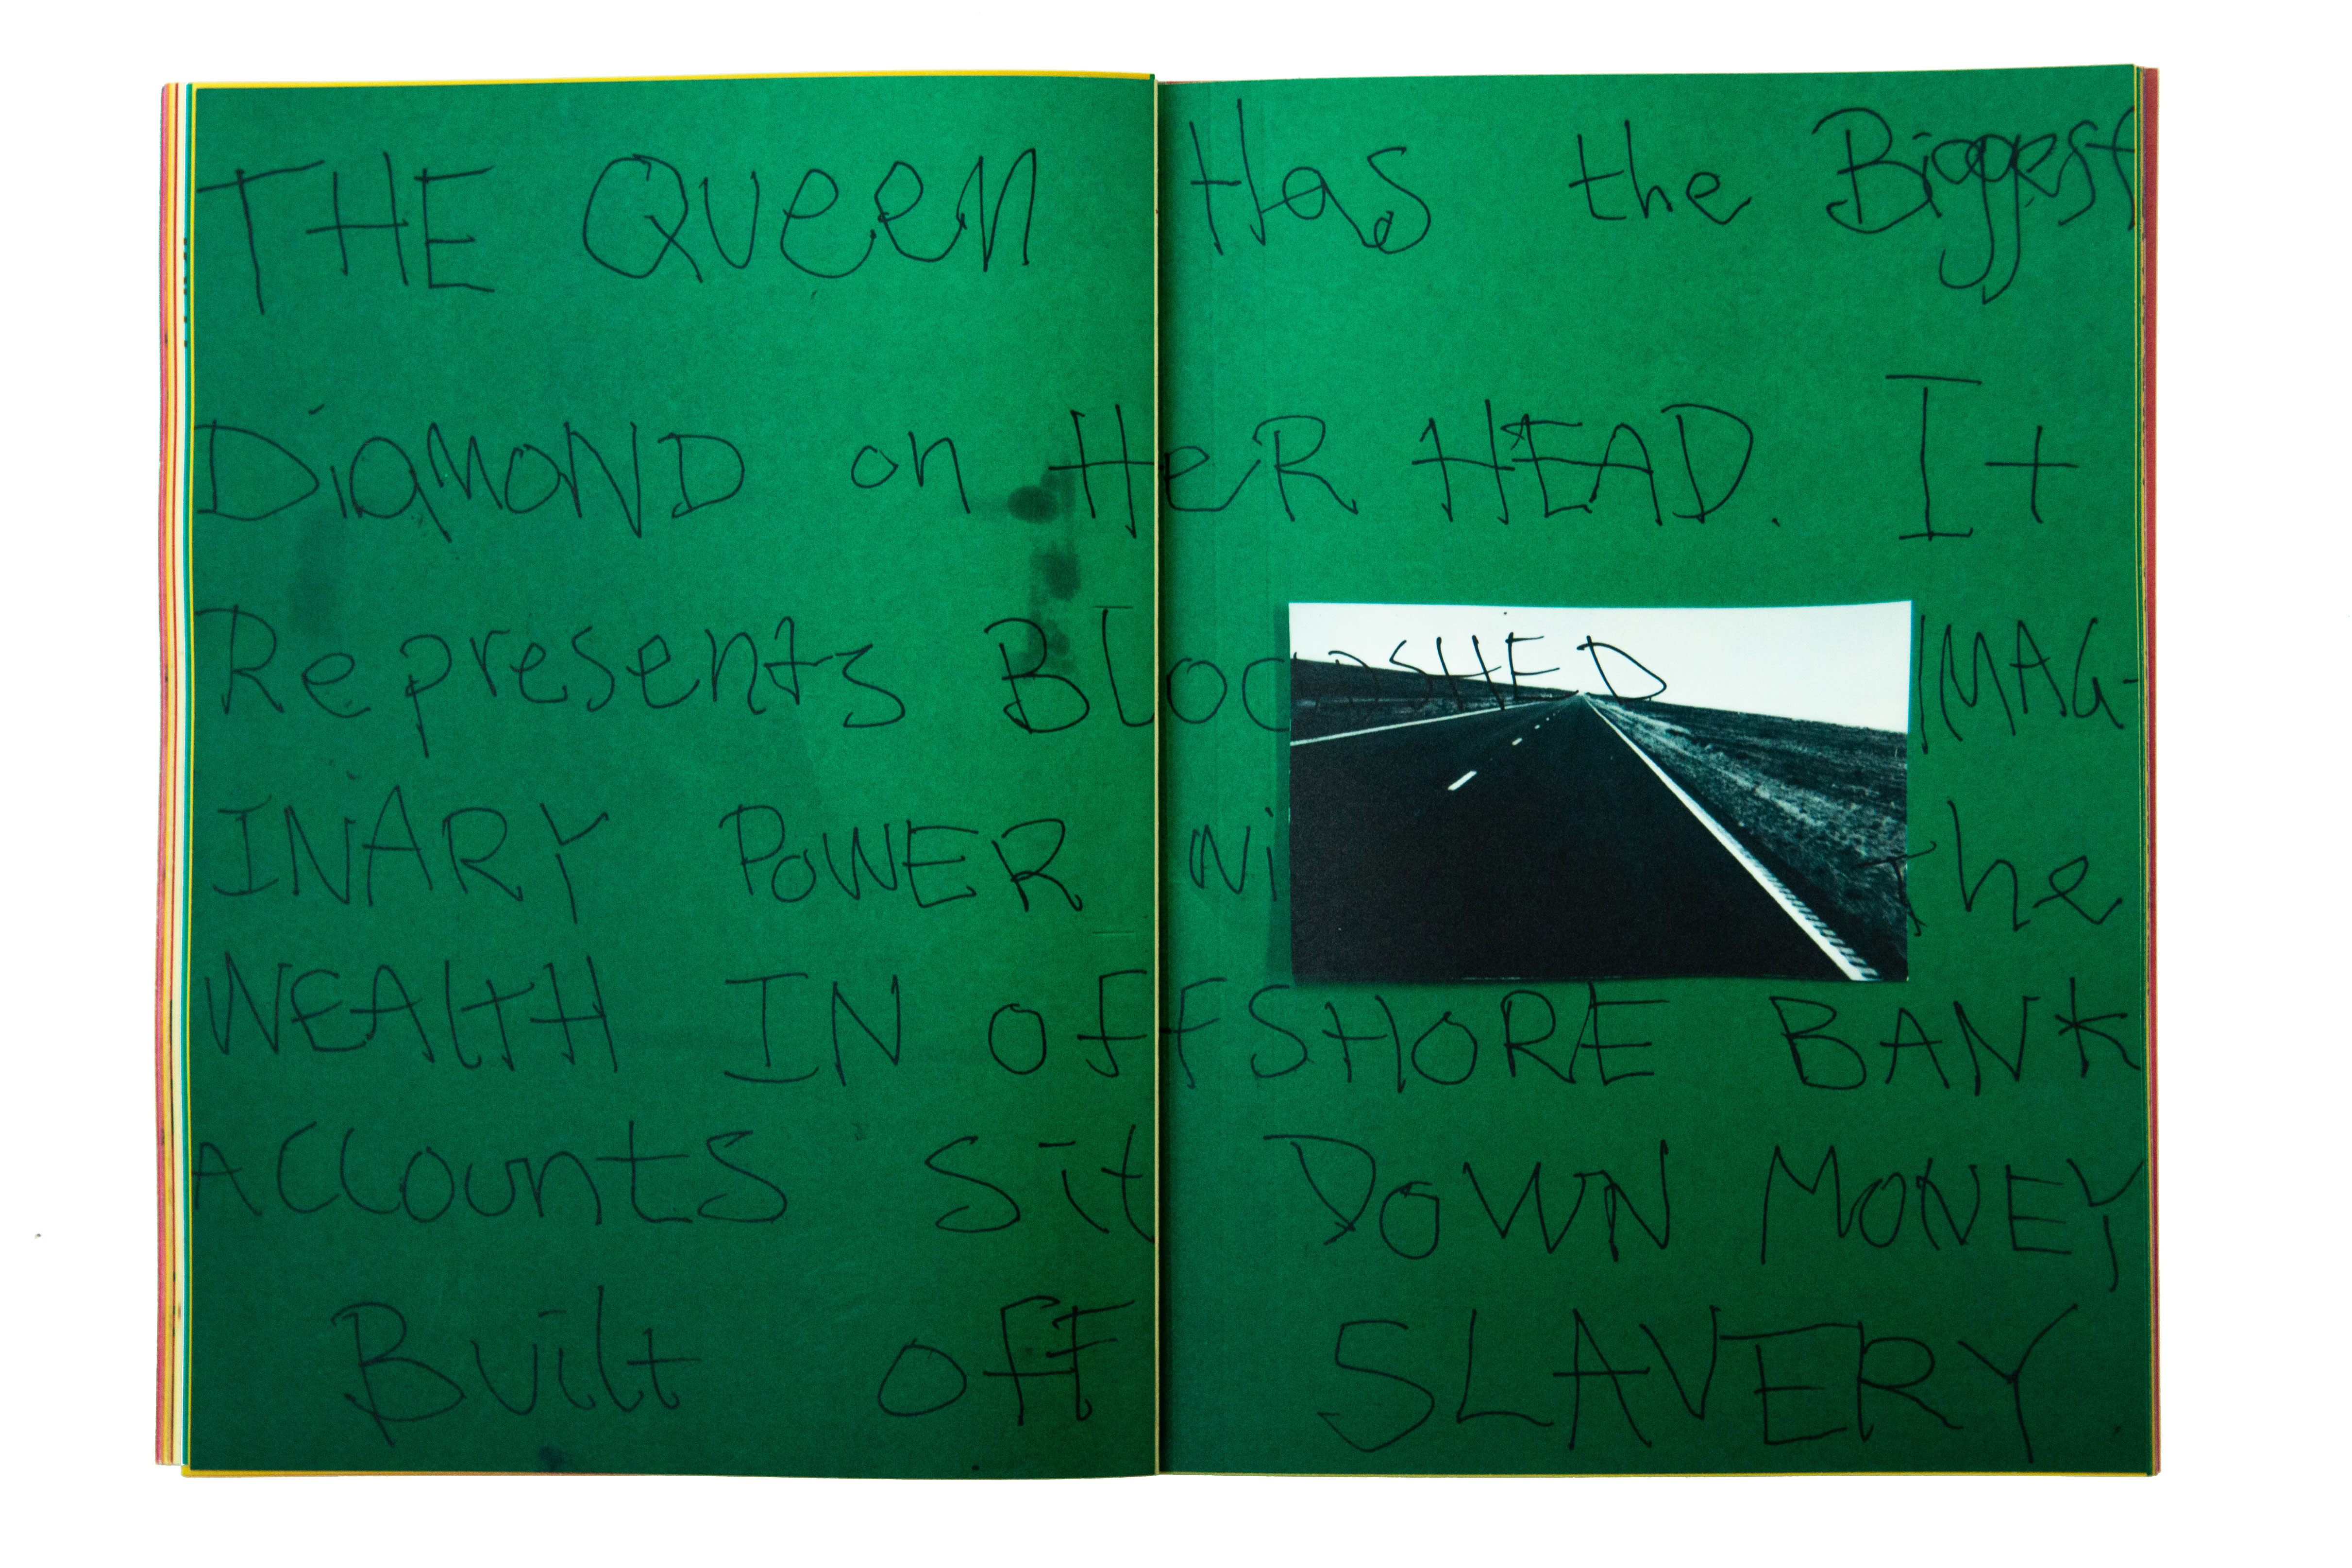 THE Queen Has the Biggest
DiaMOND on HeR HEAD. It
Represents BlooDSHED IMAG-
INARY PoWER the
WEAltH IN oFFSHORE BANK
ACCounts Sit DOWN MONEY
Built oFF SLAVERY.